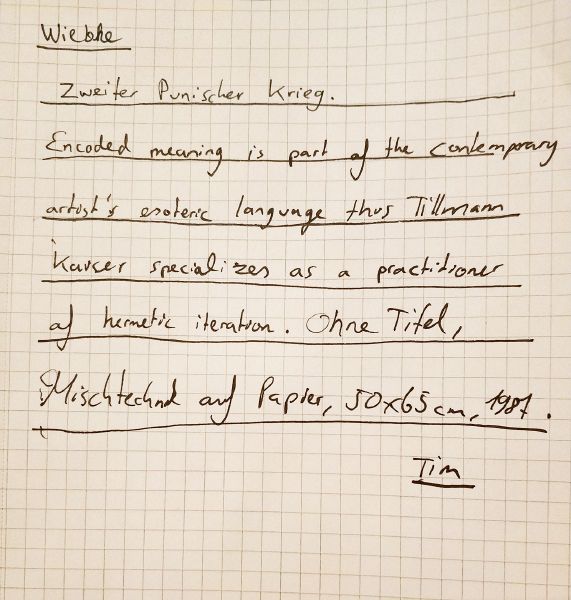 Wiebke
Zweiter Punischer Krieg.
Encoded meaning is part of the contemporary
artist's esoteric language thus Tillmann
Kaiser specializes as a practitioner
of hermetic iteration. Ohne Titel,
Mischtechnik auf Papier, 50x65cm, 1987.
Tim